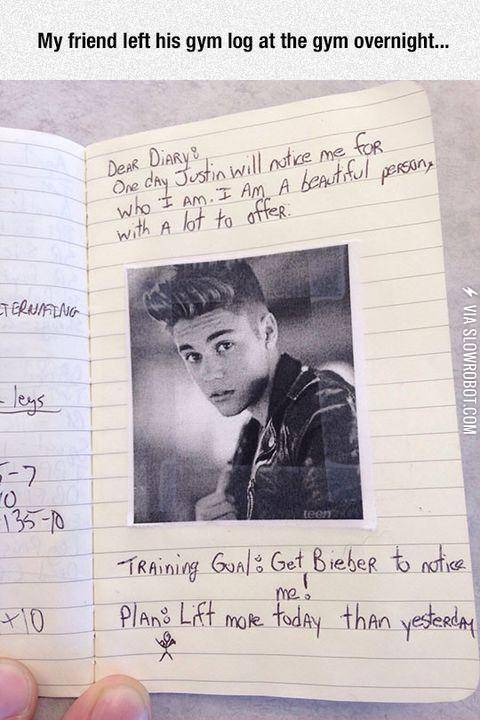 My friend left his gym log at the gym overnight...
DEAR DIARY:
One day Justin will notice me for
who I am. I Am A beautiful person,
with A lot to offer.
TERNATING
legs
5-7
10
135-10
+x10
teen
TRAining GoAl: Get Bieber to notice
me!
PlAn: Lift more today than yesterday
VIA SLOWROBOT.COM